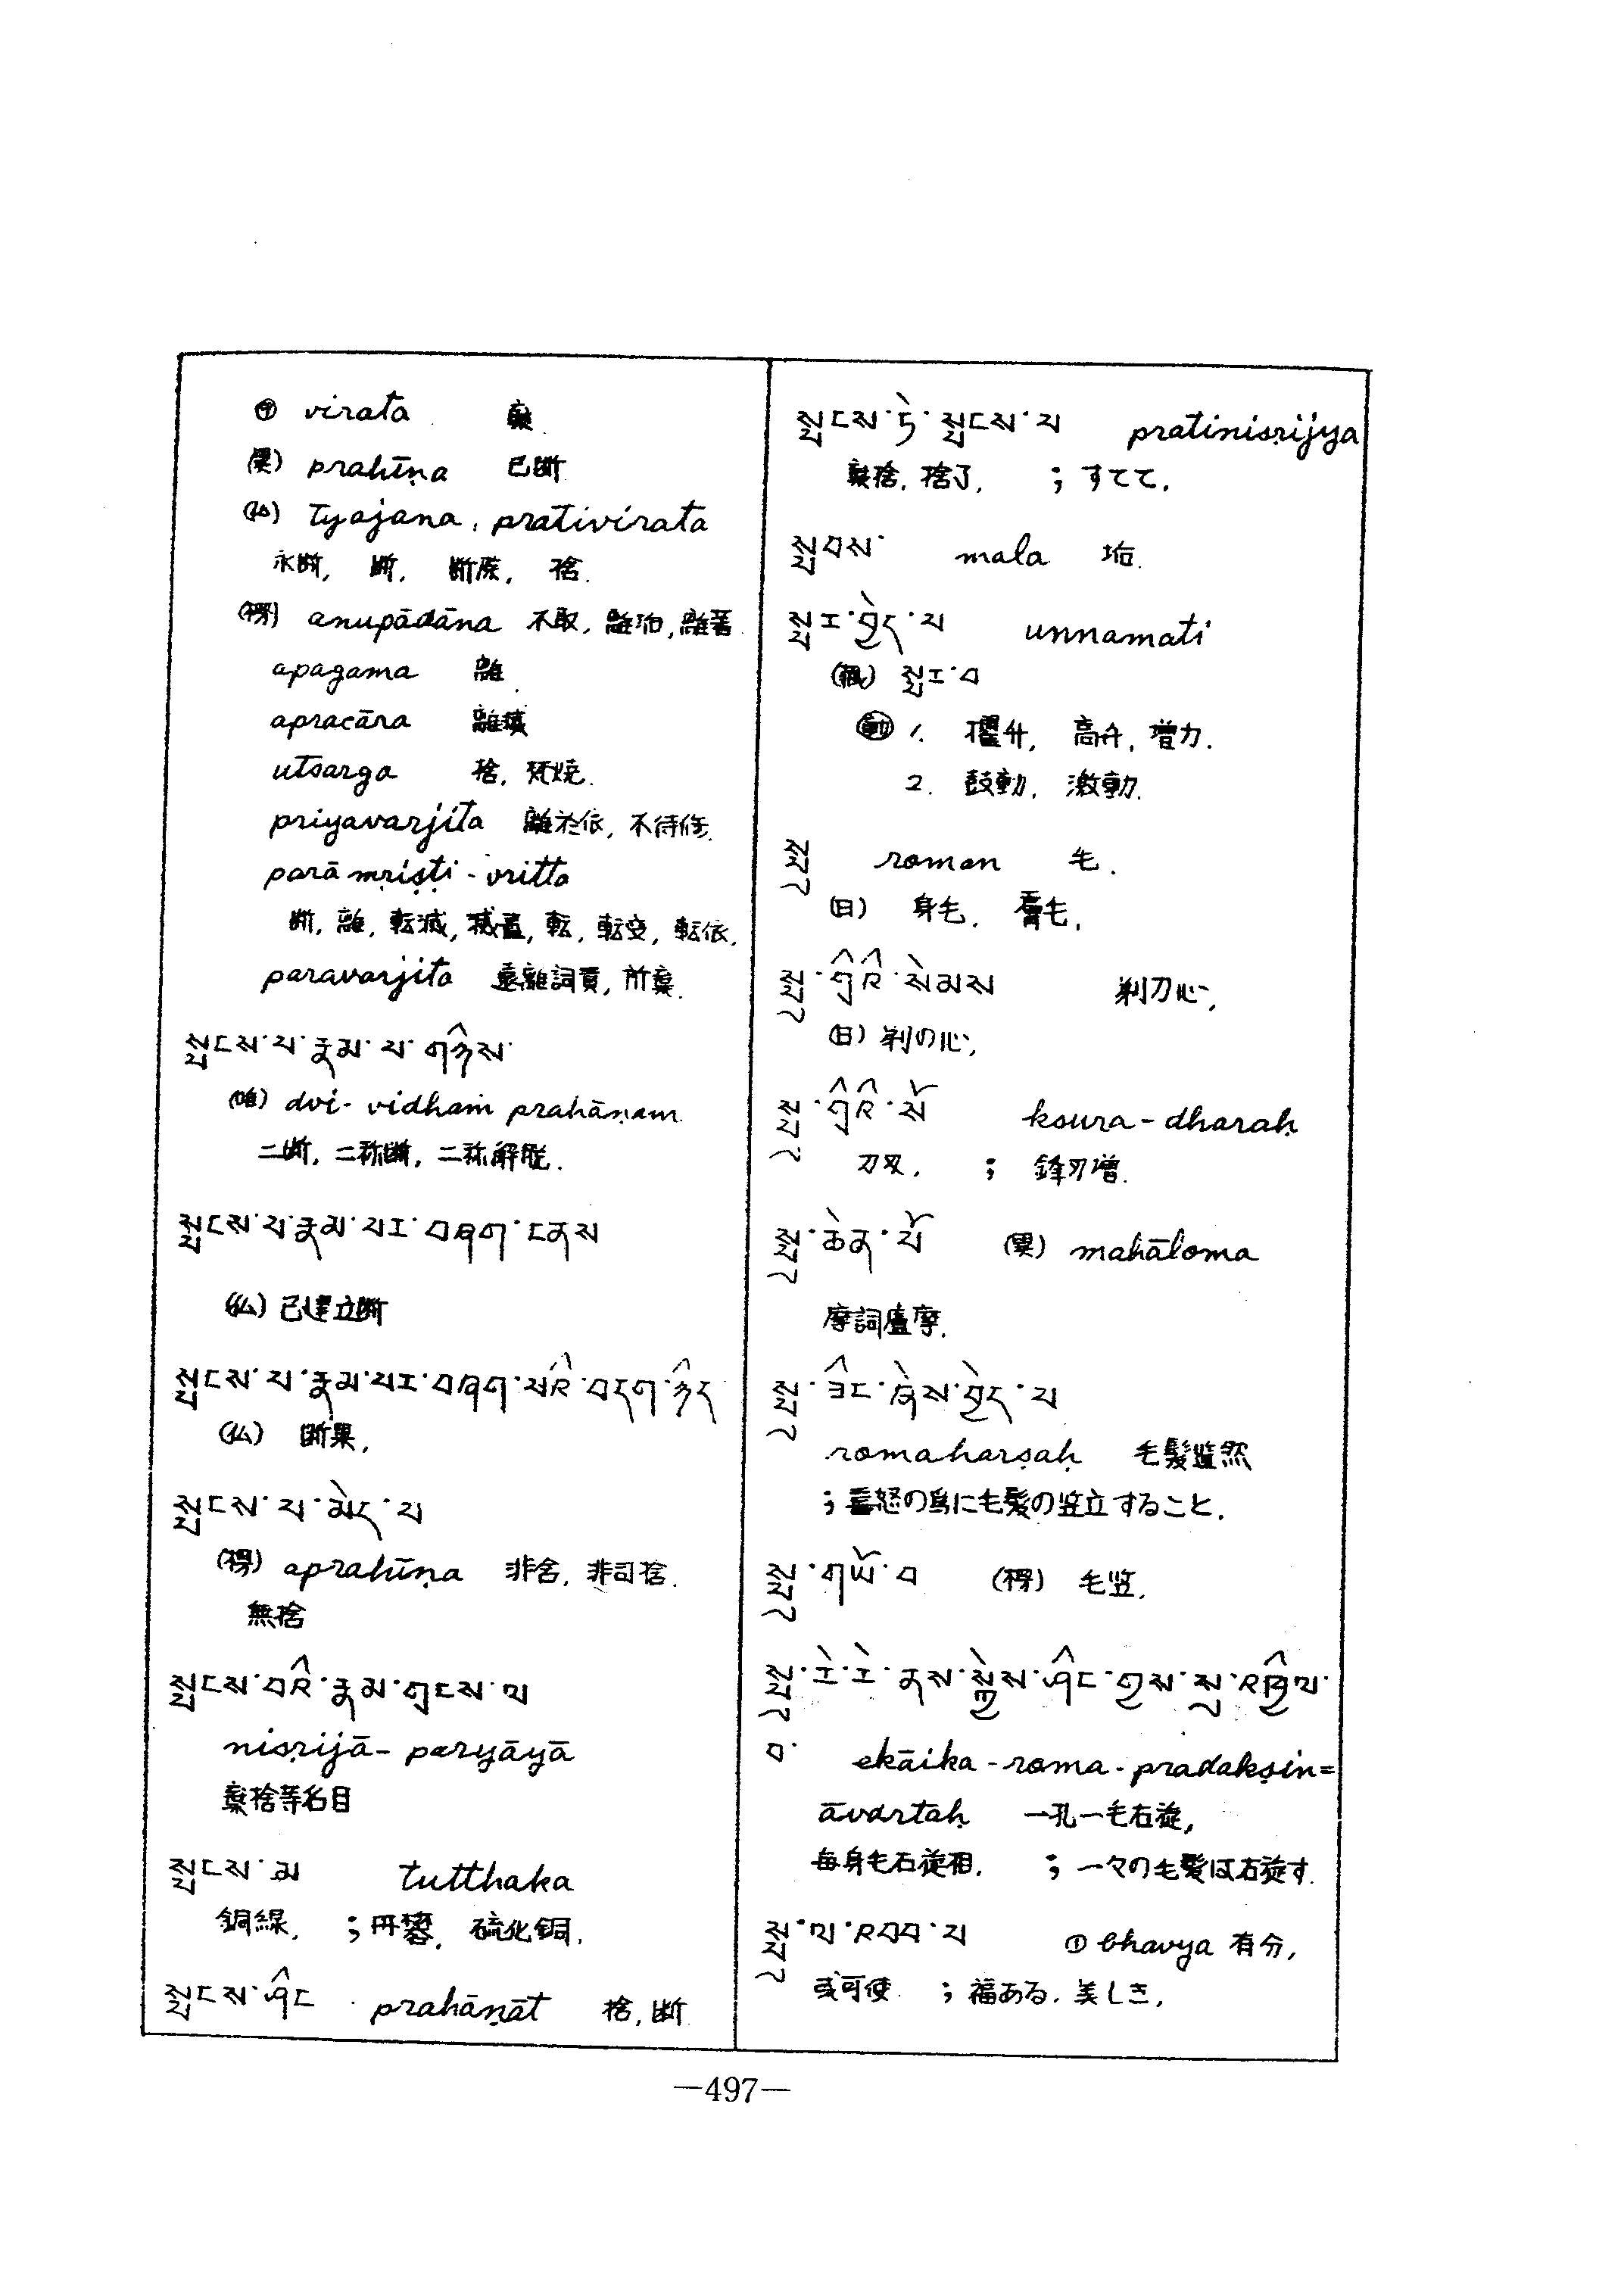 virata 棄
(異) prahīṇa 已断
(仏) tyajana, prativirata
永断, 断, 断廃, 捨.
(稱) anupādāna 不取, 離著
apagama 離
apracāra
utsarga 捨, 焚焼.
priyavarjita
parāmṛiṣṭi-vritta
断, 離, 転滅, 転, 転変, 転依,
paravarjita 所棄.
སྤངས་པ་རྣམ་པ་གཉིས་
(唯) dvi-vidhaṁ prahāṇam
二断, 二種断, 二種解脱.
སྤངས་པ་རྣམ་པར་བཞག་ངནས
(仏) 已建立断
སྤངས་པ་རྣམ་པར་བཞག་པའི་བདག་ཉིད
(仏) 断果,
སྤངས་པ་མེད་པ
(稱) aprahīṇa 非舍, 非可捨.
無捨
སྤངས་བའི་རྣམ་གྲངས་ལ
nisṛijā-paryāyā
棄捨等名目
སྤངས་མ tutthaka
銅緑, ;丹礬, 硫化銅.
སྤངས་ཤིང prahāṇāt 捨, 断
སྤངས་ཏེ་སྤངས་པ pratinisṛijya
棄捨, 捨了, ; すてて.
སྤབས་ mala 垢.
སྤར་བྱེད་པ unnamati
སྤར་བ
(動) 1. 擢升, 高升, 増力.
2. 鼓動, 激動.
སྤུ roman 毛.
(日) 身毛, 膚毛,
སྤུ་གྲིའི་སེམས 剃刀心,
(日) 剃の心,
སྤུ་གྲིའི་སོ ksura-dharaḥ
刀刃, ; 鋒刃増.
སྤུ་ཆེན་པོ (異) mahāloma
摩訶盧摩.
སྤུ་ཟིང་ཞེས་བྱེད་པ
romaharṣaḥ 毛髪竪然
;喜怒の為に毛髪の竪立すること.
སྤུ་གཡོ་བ (稱) 毛竪.
སྤུ་རེ་རེ་ནས་སྐྱེས་ཤིང་གྱས་སུ་འཁྱིལ་
བ་ ekāika-roma-pradakṣin=
āvartaḥ 一孔一毛右旋,
毎身毛右旋相. ; 一々の毛髪は右旋す.
སྤུ་ལ་འབབ་པ ① bhavya 有分,
或可使 ; 福ある. 美しき,
—497—